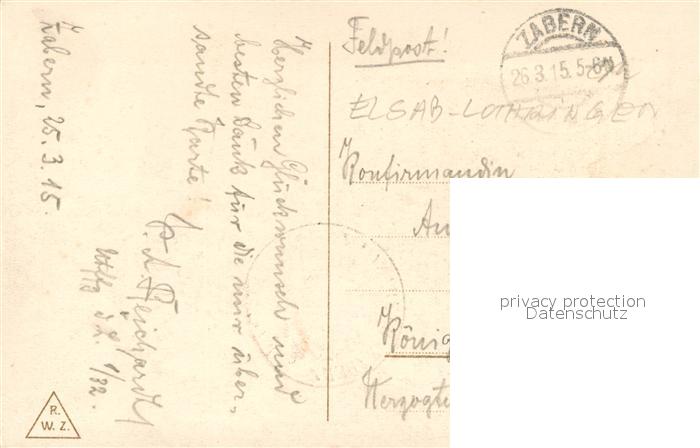 Zabern, 25. 3. 15.
Herzlichen Glückwunsch und
besten Dank für die mir über-
sandte Karte!
Reichardt
R.
W. Z.
Feldpost!
ZABERN
26.3.15.5-6N
ELSAß-LOTHRINGEN
Konfirmandin
König
Herzogt
privacy protection
Datenschutz